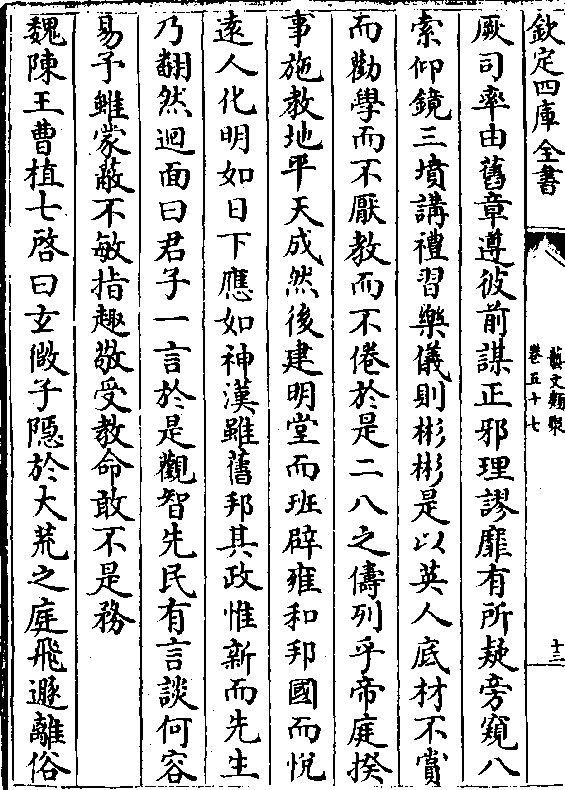 欽定四庫全書
藝文類聚
卷五十七
十三
厥司率由舊章遵彼前謀正邪理謬靡有所疑旁窺八
索仰鏡三墳講禮習樂儀則彬彬是以英人底材不賞
而勸學而不厭教而不倦於是二八之儔列乎帝庭揆
事施教地平天成然後建明堂而班辟雍和邦國而悅
逺人化明如日下應如神漢雖舊邦其政惟新而先生
乃翻然迴面曰君子一言於是觀智先民有言談何容
易予雖蒙蔽不敏指趣敬受教命敢不是務
魏陳王曹植七啓曰玄微子隱於大荒之庭飛遯離俗